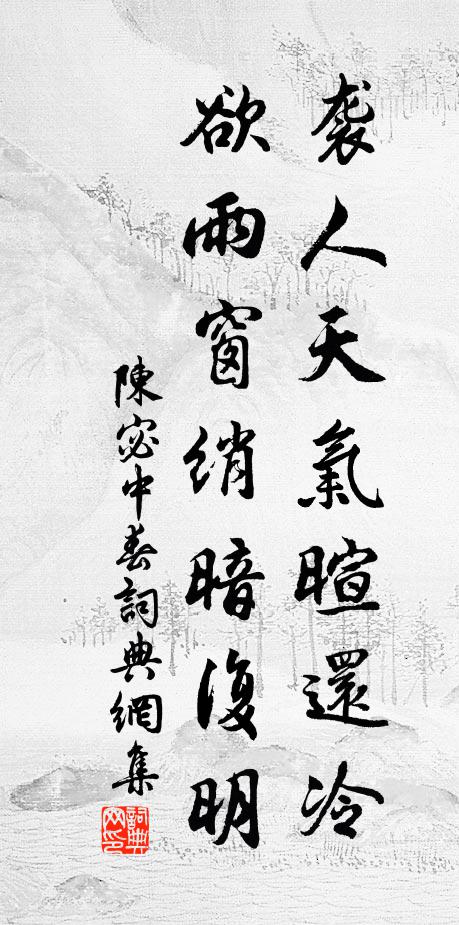 袭人天氣暄還冷
欲雨窗綃暗復明
陳宓中春詞典網集
詞典網印